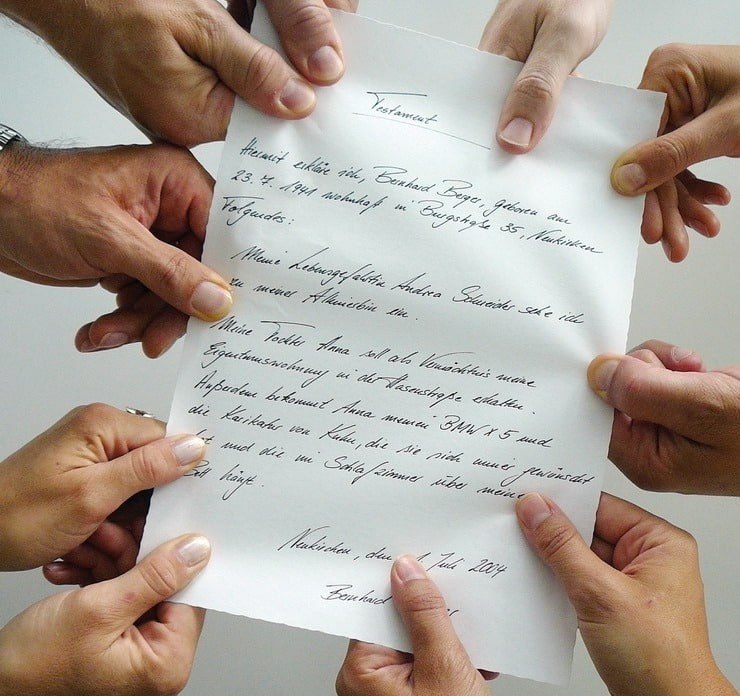 Testament
Hiermit erkläre ich, Bernhard Beger, geboren am
23. 7. 1941 wohnhaft in Burgstraße 35, Neukirchen
Folgendes:
Meine Lebensgefährtin Andrea Schneider setze ich
zu meiner Alleinerbin ein.
Meine Tochter Anna soll als Vermächtnis meine
Eigentumswohnung in der Hasenstraße erhalten.
Außerdem bekommt Anna meinen BMW X 5 und
die Karikatur von Kuhn, die sie sich immer gewünscht
und die im Schlafzimmer über meine
Bett hängt.
Neukirchen, den 1. Juli 2004
Bernhard